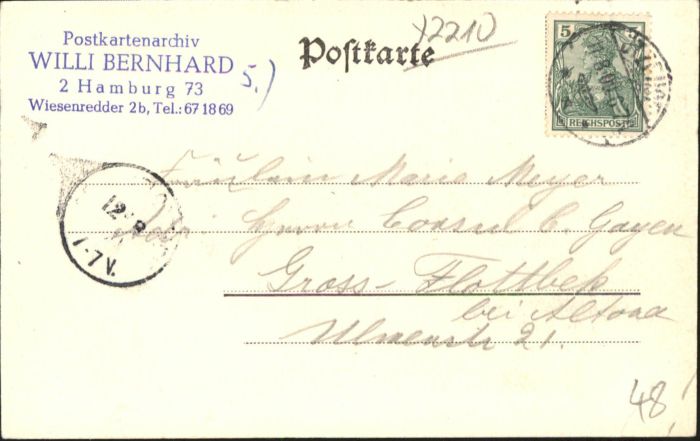 Postkartenarchiv
WILLI BERNHARD
2 Hamburg 73
Wiesenredder 2b, Tel.: 67 18 69
5.)
Postkarte
X2210
5
REICHSPOST
12 8
7-7V.
Fräulein Maria Meyer
Herrn Consul C. Gayen
Gross-Flottbek
bei Altona
Ulmenstr 21.
48